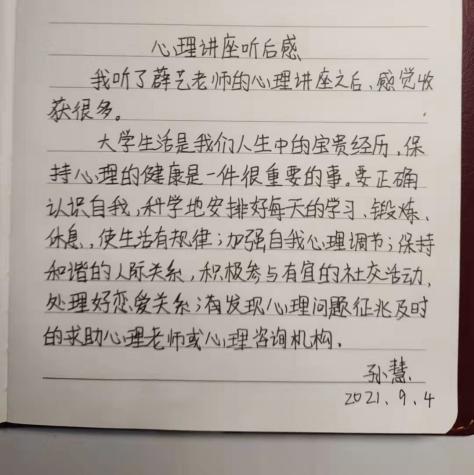 心理讲座听后感
我听了薛艺老师的心理讲座之后、感觉收
获很多。
大学生活是我们人生中的宝贵经历,保
持心理的健康是一件很重要的事。要正确
认识自我,科学地安排好每天的学习、锻炼、
休息,使生活有规律;加强自我心理调节;保持
和谐的人际关系,积极参与有宜的社交活动,
处理好恋爱关系;有发现心理问题征兆及时
的求助心理老师或心理咨询机构.
孙慧.
2021.9.4